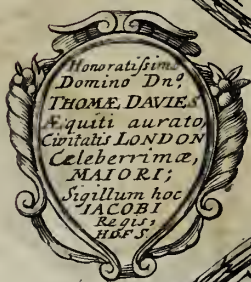 Honoratissimo
Domino Dnº.
THOMÆ DAVIES
Æquiti aurato,
Civitatis LONDON
Celeberrimæ,
MAIORI;
Sigillum hoc
IACOBI
Regis,
HDFS